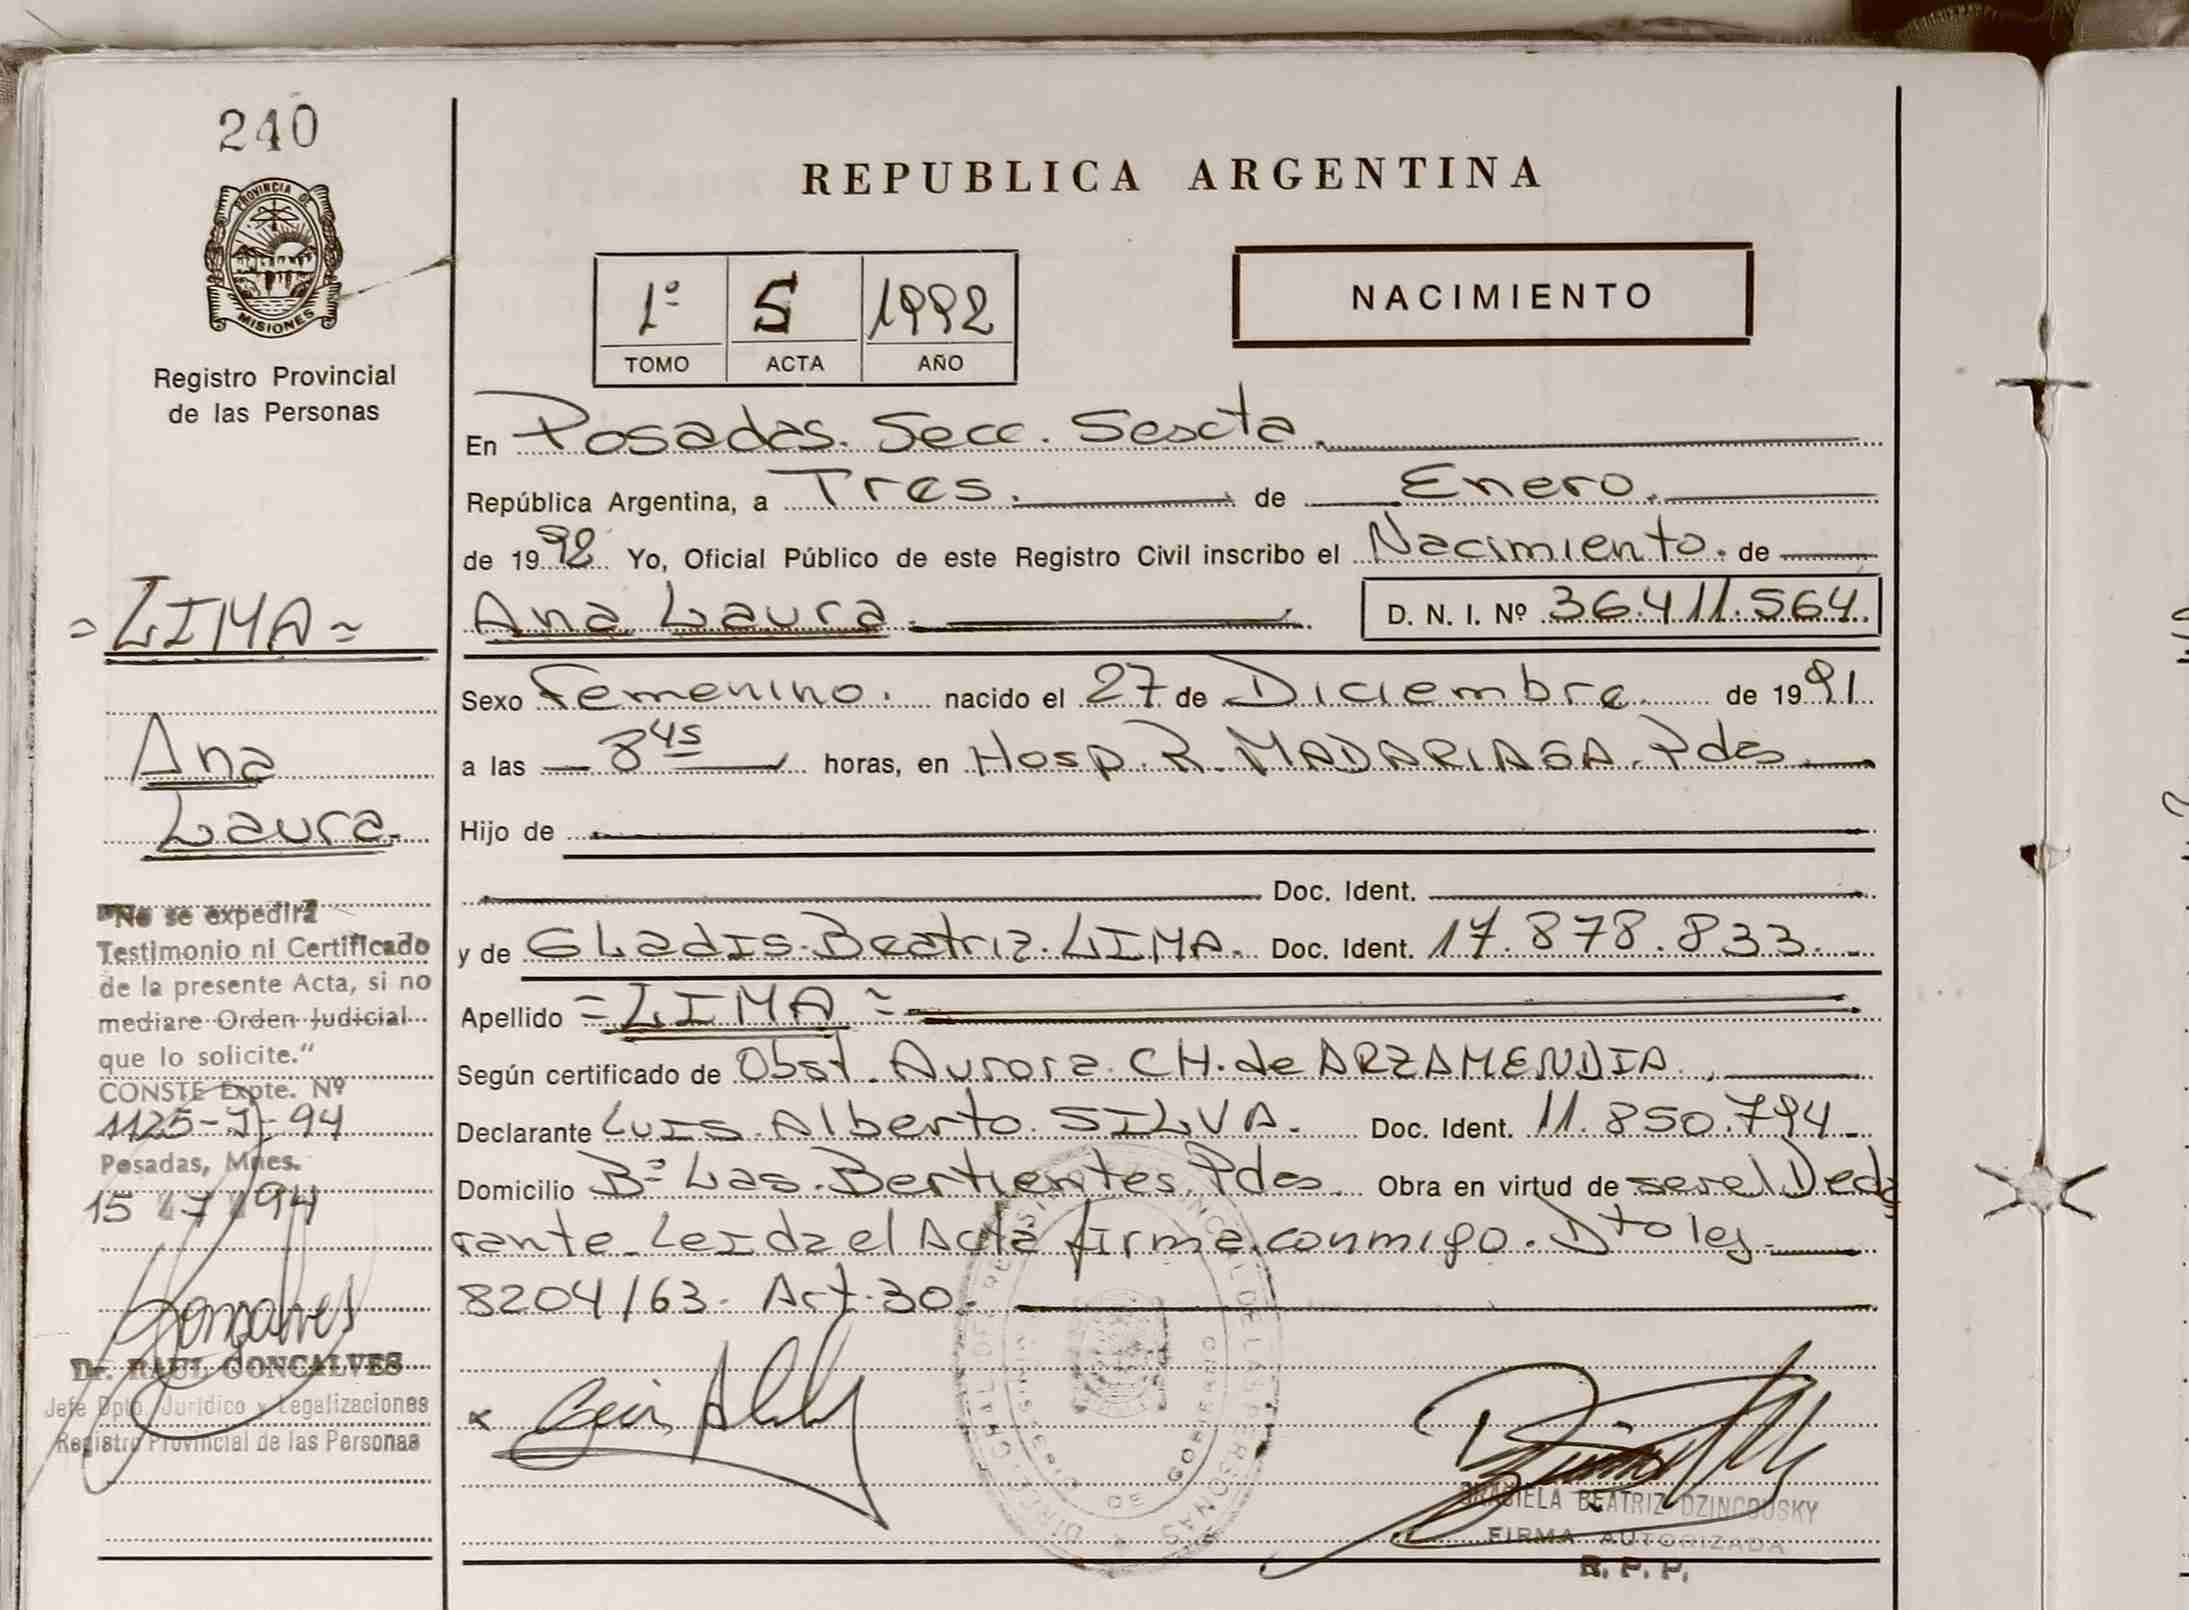 240
PROVINCIA DE
MISIONES
Registro Provincial
de las Personas
= LIMA =
Ana
Laura.
"No se expedirá
Testimonio ni Certificado
de la presente Acta, si no
mediare Orden Judicial
que lo solicite."
CONSTE Expte. Nº
1125-J-94
Posadas, Mnes.
15 7 94
Gonçalves
Dr. RAUL GONCALVES
Jefe Dpto. Jurídico y Legalizaciones
Registro Provincial de las Personas
REPUBLICA ARGENTINA
1º 5 1992
TOMO ACTA AÑO
NACIMIENTO
En Posadas. Secc. Sescta.
República Argentina, a Tres. de Enero.
de 1992 Yo, Oficial Público de este Registro Civil inscribo el Nacimiento. de
Ana Laura. D. N. I. Nº 36.411.564.
Sexo Femenino. nacido el 27 de Diciembre de 1991
a las 8 45 horas, en Hosp. R. MADARIAGA. Pdas
Hijo de
Doc. Ident.
y de GLadis Beatriz LIMA. Doc. Ident. 17.878.833.
Apellido = LIMA =
Según certificado de Obst. Aurora CH. de ARZAMENDIA.
Declarante Luis Alberto SILVA. Doc. Ident. 11.850.794
Domicilio Bº Las Bertientes Pdas Obra en virtud de ser el Decla
rante Leida el Acta firma conmigo. Dto ley
8204/63. Art. 30.
GRACIELA BEATRIZ DZINCOUSKY
FIRMA AUTORIZADA
R. P. P.